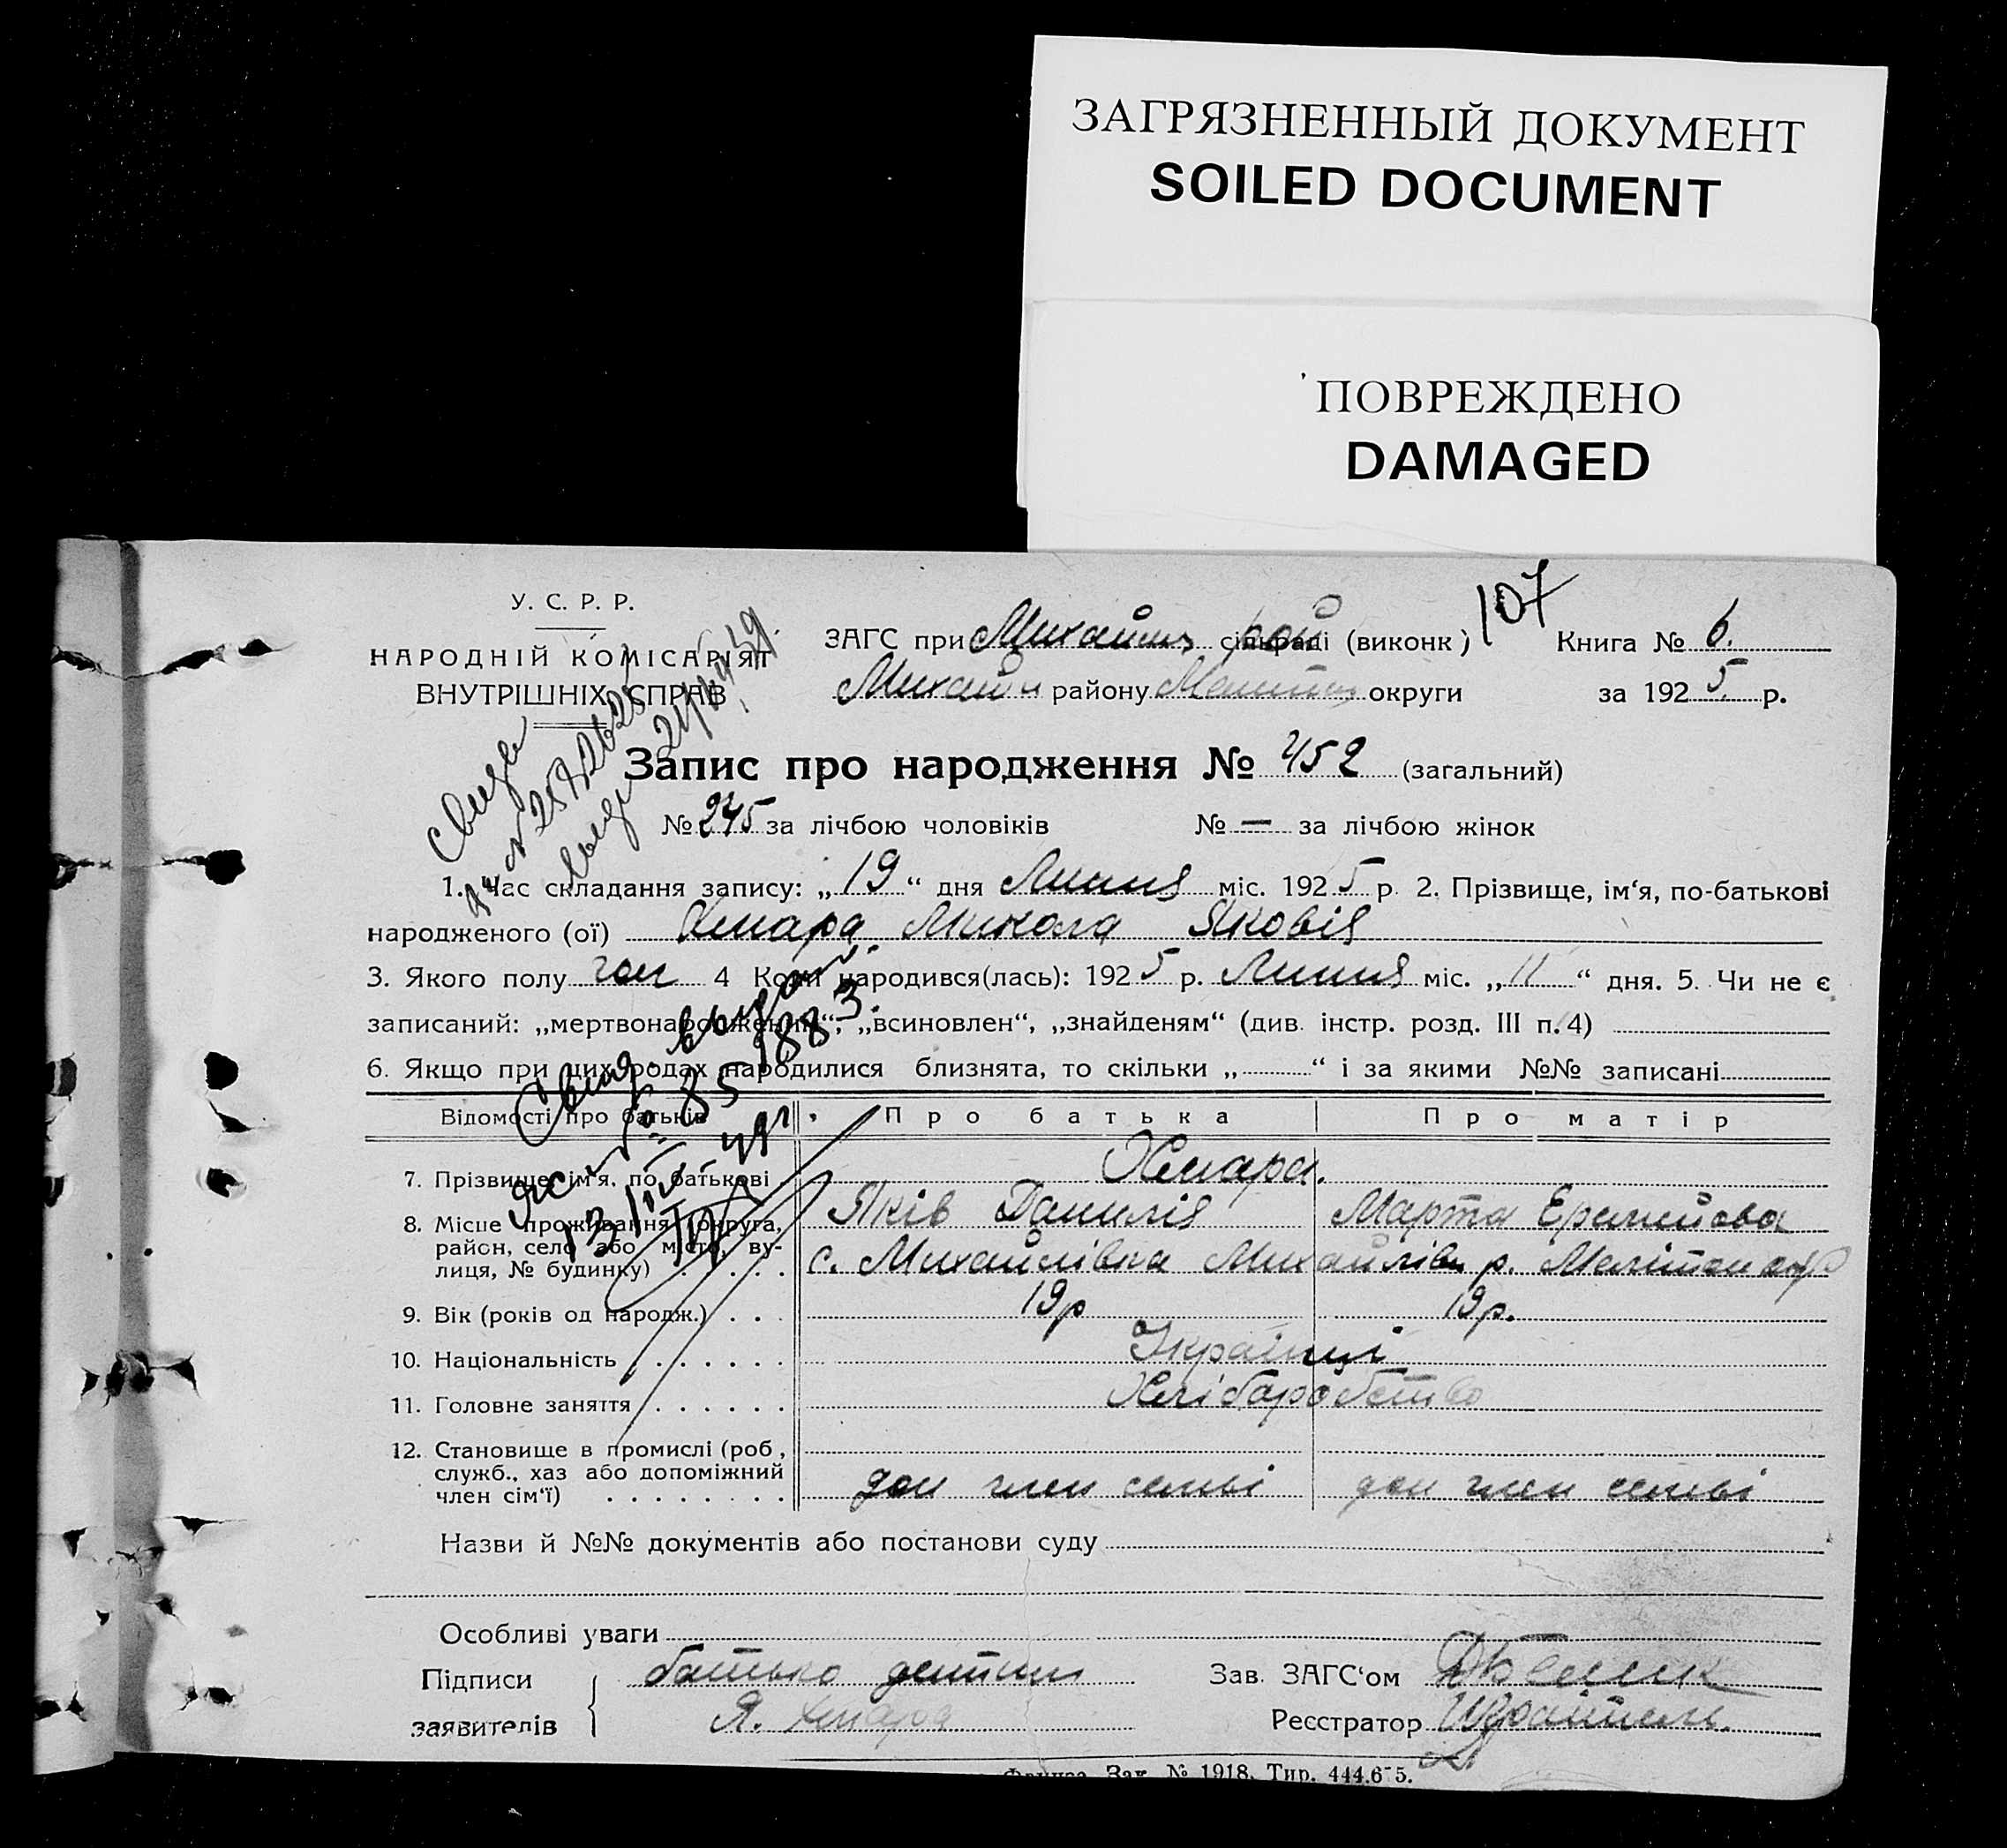 ЗАГРЯЗНЕННЫЙ ДОКУМЕНТ
SOILED DOCUMENT
ПОВРЕЖДЕНО
DAMAGED
107
У. С. Р. Р.
НАРОДНІЙ КОМІСАРІЯТ
ВНУТРІШНІХ СПРАВ
ЗАГС при Михайл. рай сільраді (виконк) Книга № 6.
Михайл району Меліт округи за 1925 р.
Запис про народження № 452 (загальний)
№ 245 за лічбою чоловіків № — за лічбою жінок
1. Час складання запису: „19“ дня Липня міс. 1925 р. 2. Прізвище, ім‘я, по-батькові
народженого (ої) Хмара Микола Яковів
3. Якого полу чол 4 Коли народився(лась): 1925 р. Липня міс. „11“ дня. 5. Чи не є
записаний: „мертвонароджений“, „всиновлен“, „знайденям“ (див. інстр. розд. III п. 4)
6. Якщо при цих родах народилися близнята, то скільки „ “ і за якими №№ записані
Відомості про батьків Про батька Про матір
Хмара.
7. Прізвище, ім‘я, по батькові Яків Данилів Марта Еремеєва
8. Місце проживання (округа, район, село або місто, ву-
лиця, № будинку) с. Михайлівка Михайлівн р. Мелітоп окр
9. Вік (років од народж.) 19р 19р.
10. Національність Українці
11. Головне заняття Хліборобство
12. Становище в промислі (роб,
служб., хаз або допоміжний
член сім‘ї) доп член семьі доп член семьі
Назви й №№ документів або постанови суду
Особливі уваги
Підписи батько дитини Зав. ЗАГС‘ом
заявителів Я. Хмара Реєстратор
Зак. № 1918. Тир. 444.6-5.
Свид. выдан
№ 851883.